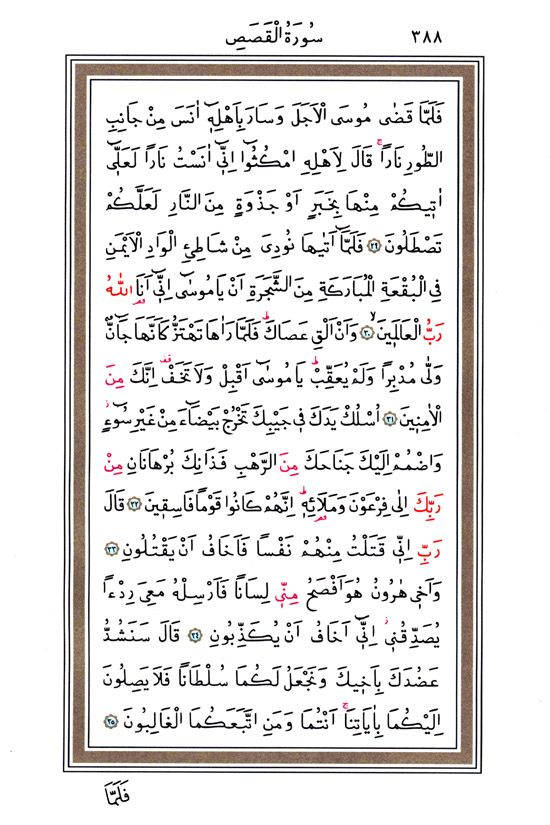 ٣٨٨
سُورَةُ الْقَصَصِ
فَلَمَّا قَضٰى مُوسَى الْاَجَلَ وَسَارَ بِاَهْلِه۪ٓ اٰنَسَ مِنْ جَانِبِ
الطُّورِ نَاراًۚ قَالَ لِاَهْلِهِ امْكُثُٓوا اِنّ۪ٓي اٰنَسْتُ نَاراً لَعَلّ۪ٓي
اٰت۪يكُمْ مِنْهَا بِخَبَرٍ اَوْ جَذْوَةٍ مِنَ النَّارِ لَعَلَّكُمْ
تَصْطَلُونَ ﴿٢٩﴾ فَلَمَّٓا اَتٰيهَا نُودِيَ مِنْ شَاطِئِ الْوَادِ الْاَيْمَنِ
فِي الْبُقْعَةِ الْمُبَارَكَةِ مِنَ الشَّجَرَةِ اَنْ يَا مُوسٰٓى اِنّ۪ٓي اَنَا اللّٰهُ
رَبُّ الْعَالَم۪ينَۙ ﴿٣٠﴾ وَاَنْ اَلْقِ عَصَاكَۜ فَلَمَّا رَاٰهَا تَهْتَزُّ كَاَنَّهَا جَٓانٌّ
وَلّٰى مُدْبِراً وَلَمْ يُعَقِّبْۜ يَا مُوسٰٓى اَقْبِلْ وَلَا تَخَفْ۠ اِنَّكَ مِنَ
الْاٰمِن۪ينَ ﴿٣١﴾ اُسْلُكْ يَدَكَ ف۪ي جَيْبِكَ تَخْرُجْ بَيْضَٓاءَ مِنْ غَيْرِ سُٓوءٍۘ
وَاضْمُمْ اِلَيْكَ جَنَاحَكَ مِنَ الرَّهْبِ فَذَانِكَ بُرْهَانَانِ مِنْ
رَبِّكَ اِلٰى فِرْعَوْنَ وَمَلَا۬ئِه۪ۜ اِنَّهُمْ كَانُوا قَوْماً فَاسِق۪ينَ ﴿٣٢﴾ قَالَ
رَبِّ اِنّ۪ي قَتَلْتُ مِنْهُمْ نَفْساً فَاَخَافُ اَنْ يَقْتُلُونِ ﴿٣٣﴾
وَاَخ۪ي هٰرُونُ هُوَ اَفْصَحُ مِنّ۪ي لِسَاناً فَاَرْسِلْهُ مَعِيَ رِدْءاً
يُصَدِّقُن۪يۘ اِنّ۪ٓي اَخَافُ اَنْ يُكَذِّبُونِ ﴿٣٤﴾ قَالَ سَنَشُدُّ
عَضُدَكَ بِاَخ۪يكَ وَنَجْعَلُ لَكُمَا سُلْطَاناً فَلَا يَصِلُونَ
اِلَيْكُمَا بِاٰيَاتِنَاۚ اَنْتُمَا وَمَنِ اتَّبَعَكُمَا الْغَالِبُونَ ﴿٣٥﴾
فَلَمَّا